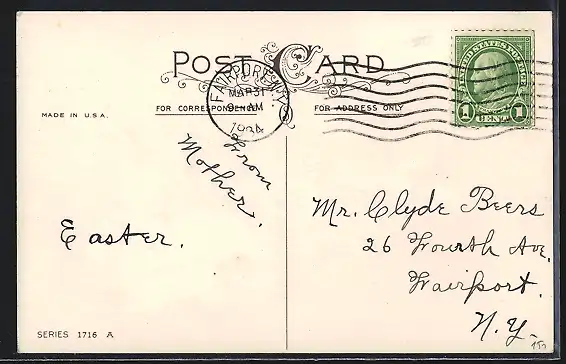 POST CARD
FAIRPORT N.Y.
MAR 31
9 - AM
1934
UNITED STATES POSTAGE
1 CENT 1
FOR CORRESPONDENCE
FOR ADDRESS ONLY
MADE IN U.S.A.
From
Mother.
Easter.
Mr. Clyde Beers
26 Fourth Ave.
Fairport.
N.Y.
SERIES 1716 A